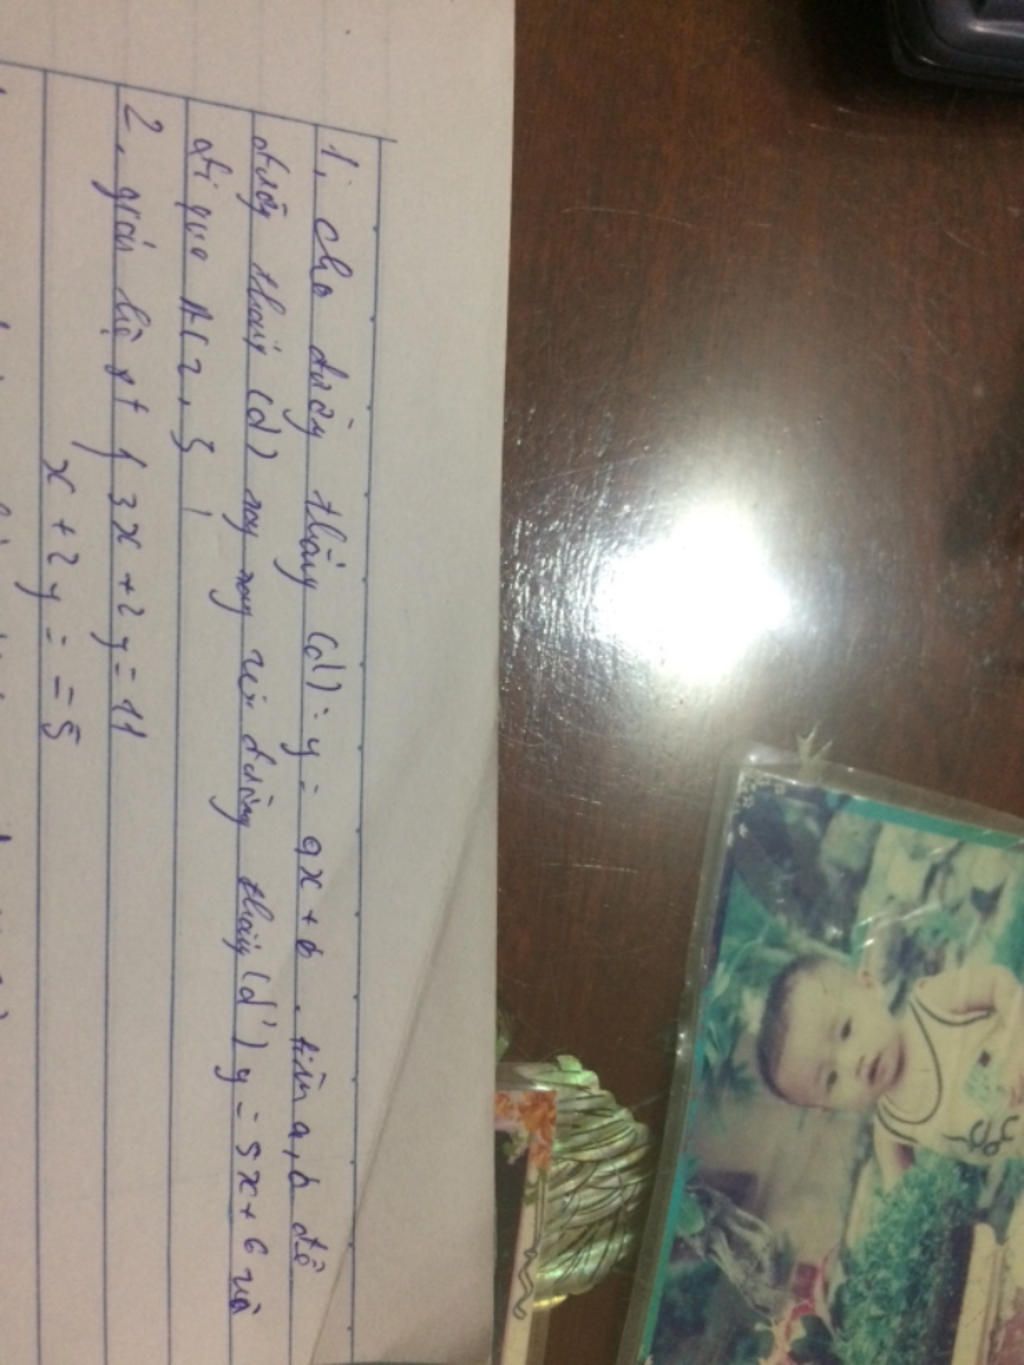 1. Cho đường thẳng (d): y = ax + b. tìm a, b để
đường thẳng (d) song song với đường thẳng (d') y = 5x + 6 và
đi qua A(2,3
2. giải hệ pt { 3x + 2y = 11
x + 2y = = 5